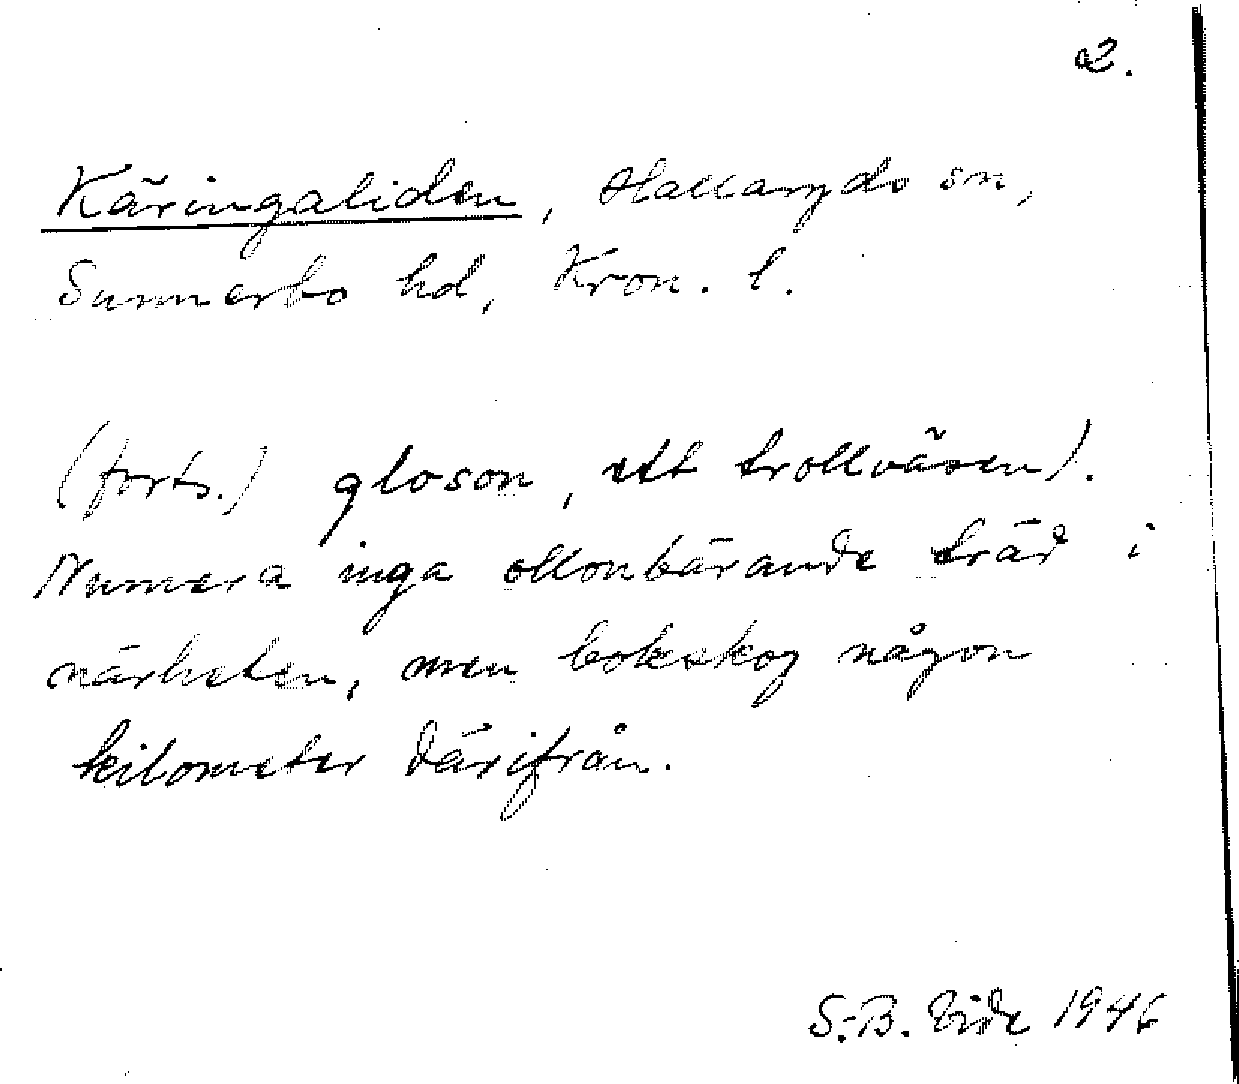 2.
Käringaliden, Hallaryds sn,
Sunnerbo hd, Kron. l.
(forts.) gloson, ett trollväsen).
Numera inga ollonbärande träd i
närheten, men bokskog någon
kilometer därifrån.
S.-B. Vide 1946